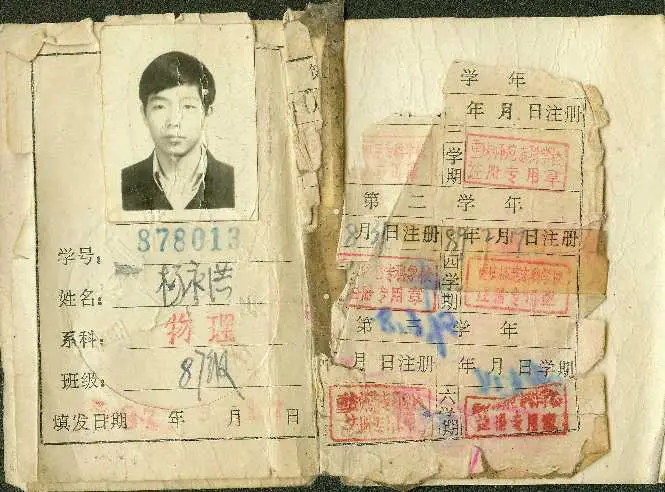 878013
学号:
姓名: 杨永浩
系科: 物理
班级: 87级
填发日期 年 月 日
学 年
年 月 日注册
二学期
师范专科学校
注册专用章
第 二 学 年
月 日注册 89年2月 日注册
四学期
专科学校
注册专用章
师范专科学校
注册专用章
第 三 学 年
月 日注册 年 月 日学期
六学期
注册专用章
注册专用章